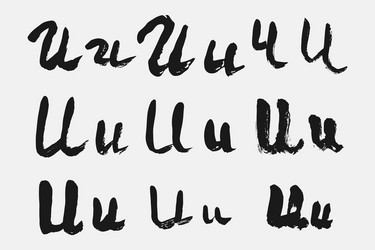 U u U u u U
U u U u U u
U u U u U u